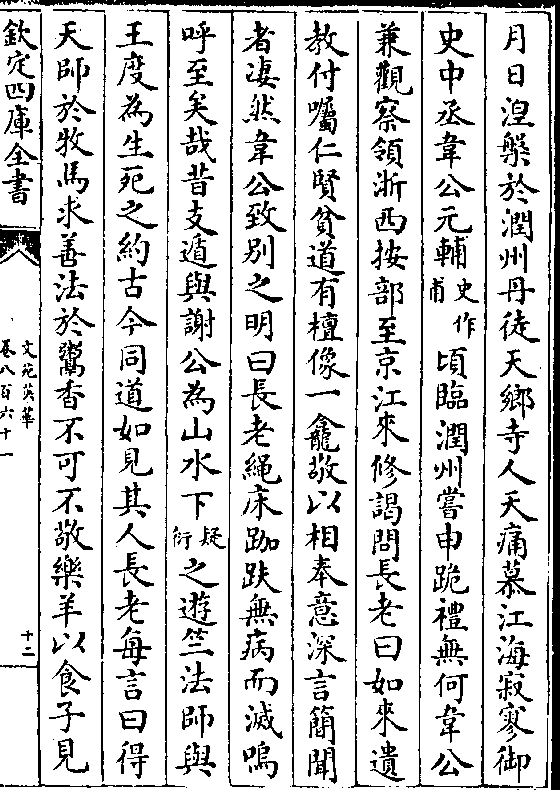 月日涅槃於潤州丹徒天鄉寺人天痛慕江海寂寥御
史中丞韋公元輔史作甫頃臨潤州嘗申跪禮無何韋公
兼觀察領浙西按部至京江來修謁問長老曰如來遺
教付囑仁賢貧道有檀像一龕敬以相奉意深言簡聞
者凄然韋公致別之明曰長老䋲床跏趺無病而滅嗚
呼至矣哉昔支遁與謝公為山水下疑衍之遊竺法師與
王度為生死之約古今同道如見其人長老每言曰得
天師於牧馬求善法於鬻香不可不敬樂羊以食子見
欽定四庫全書
文苑英華
卷八百六十一
十二